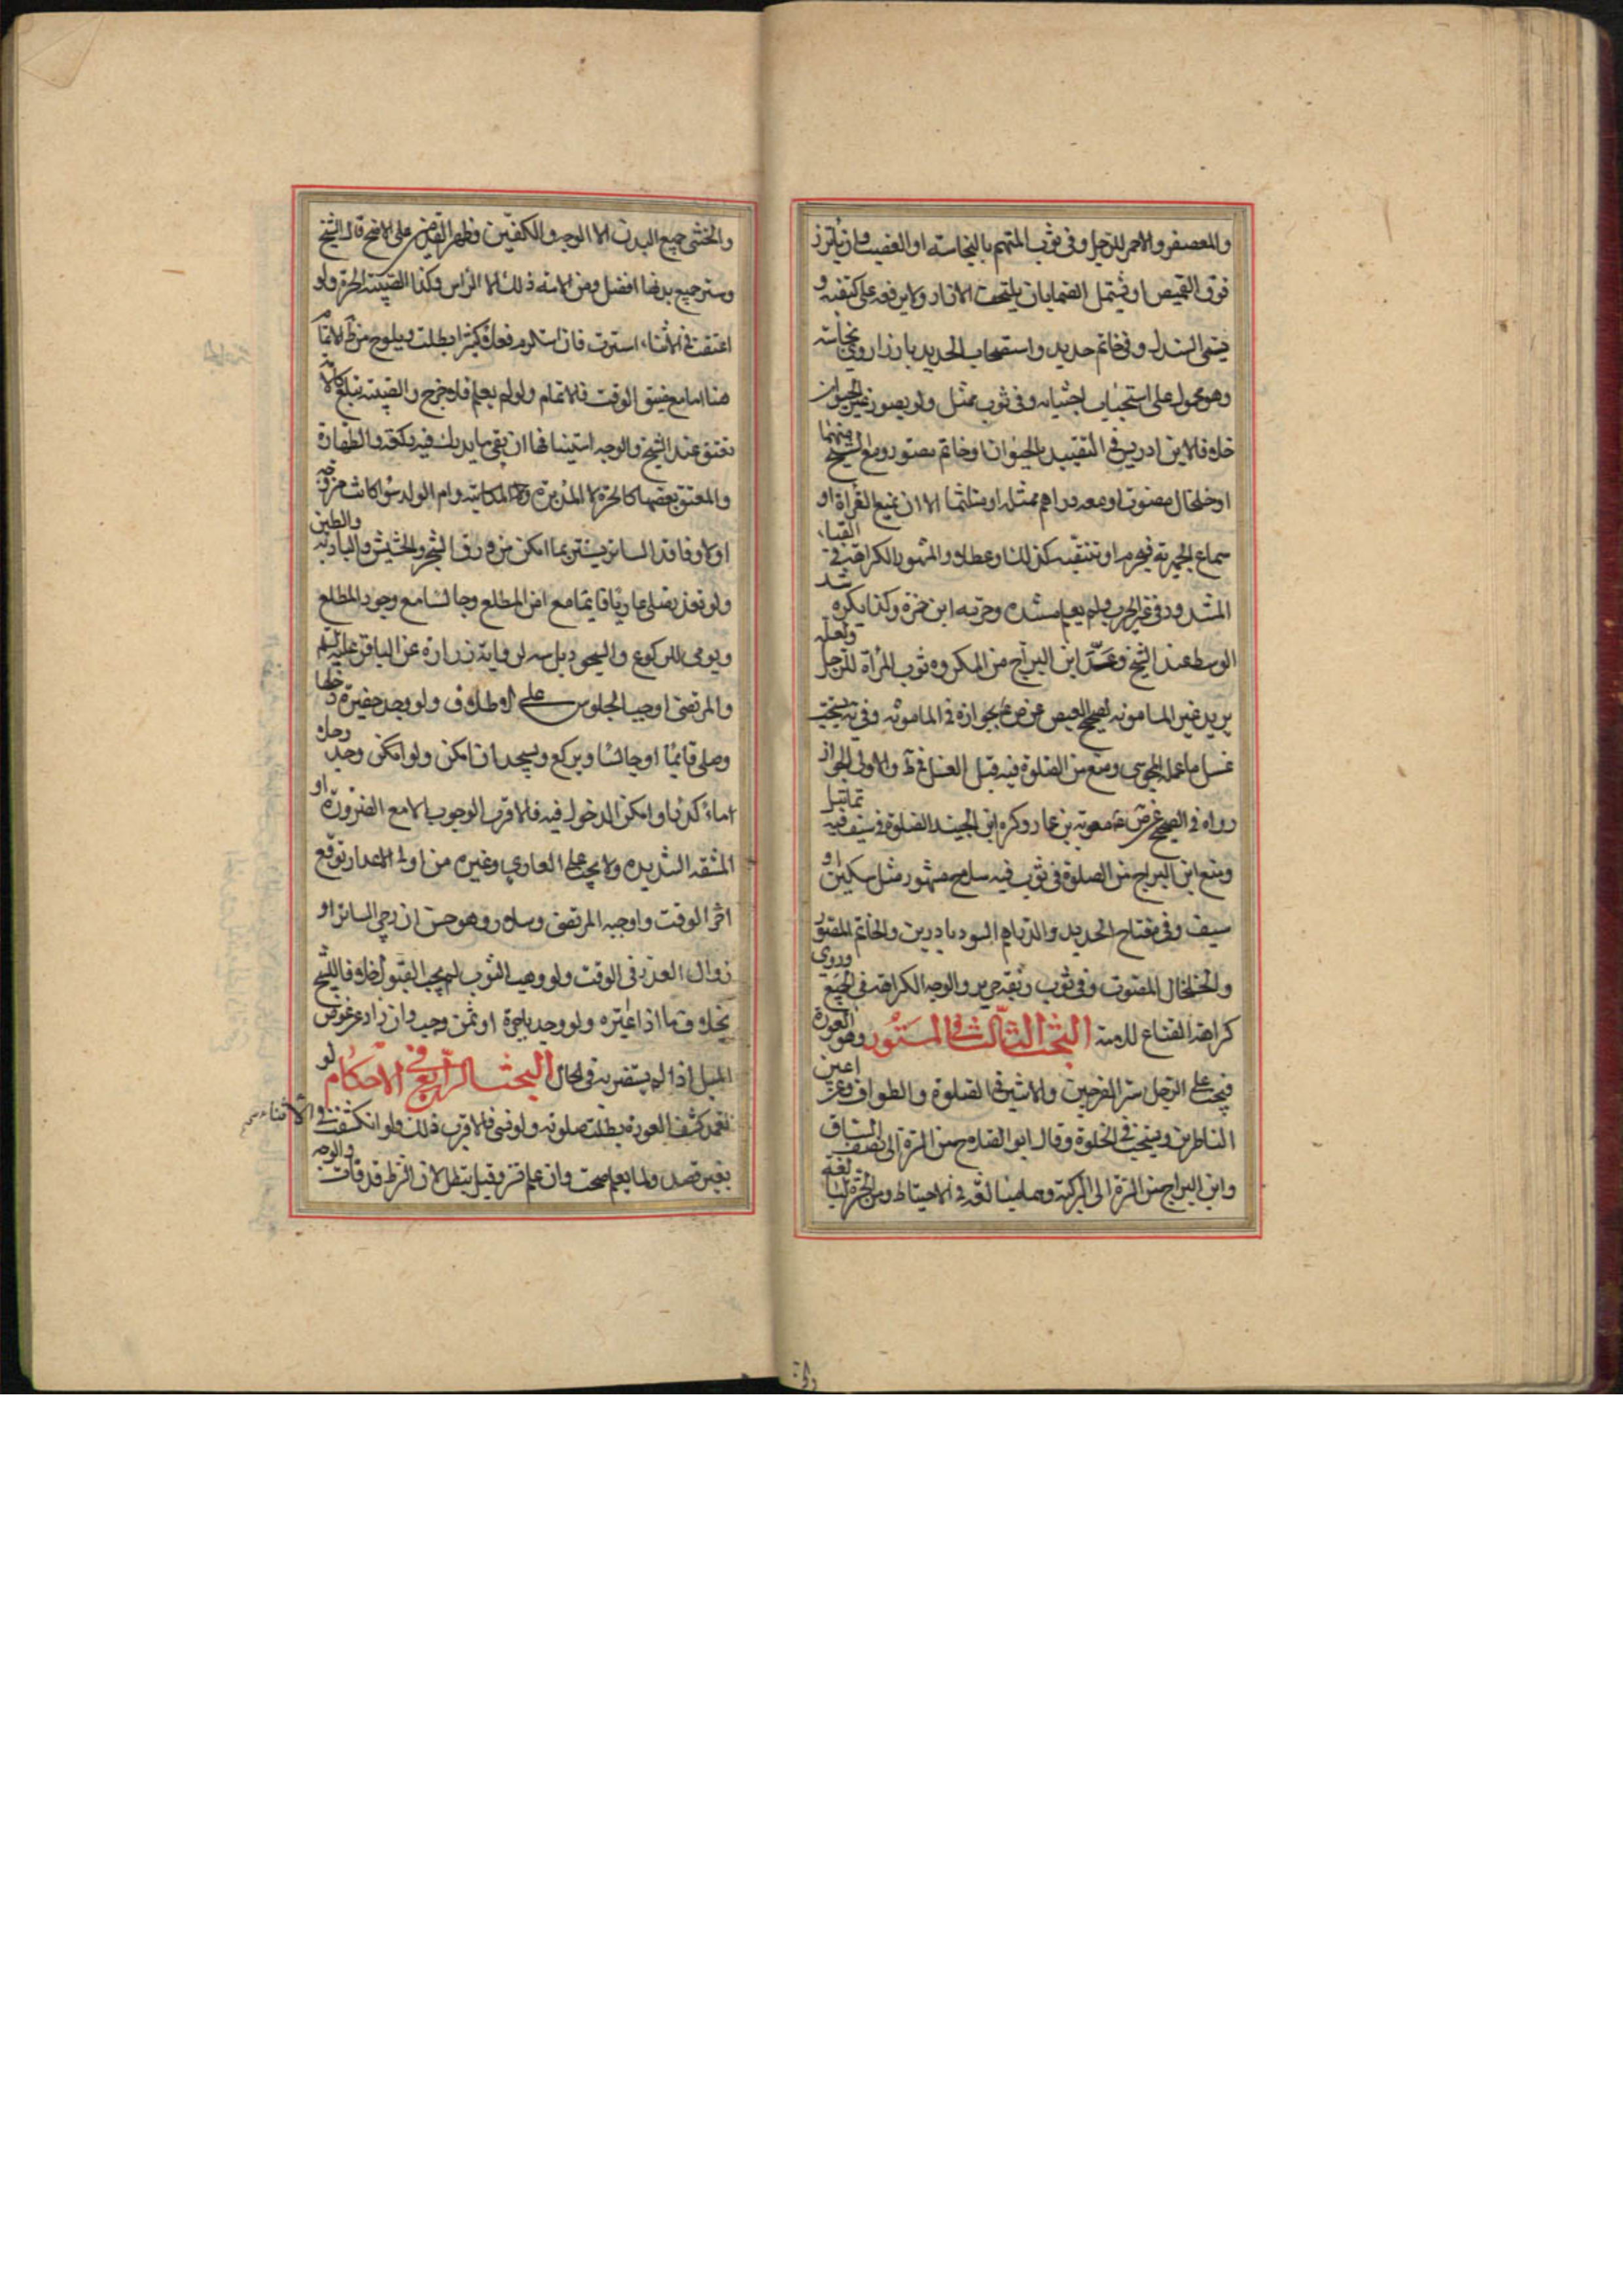 والمعصفر والاحمر للرجل وفي ثوب المتهم بالنجاسة او الغصب وان ياتزر
فوق القميص او يشتمل الصما بان يلتحف الازار ولا يرفعه على كتفيه و
يسمى السدل وفي خاتم حديد واستصحاب الحديد بارزا وروي نجاسته
وهو محمول على استحباب اجتنابه وفي ثوب ممثل ولو بصور غير الحيوان
خلافا لابن ادريس في التقييد بالحيوان او خاتم مصور ومنع الشيخ منهما
او خلخال مصوت او معه دراهم ممثلة او متلثما الا ان يمنع القراءة او
سماع الجهرية فيحرم او تنقبه كذلك او عطلا والمشهور الكراهة في القباء
المشدود في غير الحرب ولم يعلم مستنده وحرمه ابن حمزة وكذا يكره شد
الوسط عند الشيخ وعد ابن البراج من المكروه ثوب المرأة للرجل ولعله
يريد غير المامونة لصحيح العيص عن ص بجوازه في المامونة وفي يه يستحب
غسل ما عمله المجوسي ومنع من الصلوة فيه قبل الغسل في ط والاولى الجواز
رواه في الصحيح عن ص معوية بن عمار وكره ابن الجنيد الصلوة في سيف فيه تماثيل
ومنع ابن البراج من الصلوة في ثوب فيه سلاح مشهور مثل سكين او
سيف وفي مفتاح الحديد والدراهم السود بادرين والخاتم المصور
والخلخال المصوت وفي ثوب رقعه حرير والوجه الكراهة في الجميع وروي
كراهة القناع للامة البحث الثالث في المستور وهو العورة
فيجب على الرجل ستر الفرجين والانثيين في الصلوة والطواف وعن اعين
الناظرين ويستحب في الخلوة وقال ابو الصلاح من السرة الى نصف الساق
وابن البراج من السرة الى الركبة وهما مبالغة في الاحتياط ومن الحرة
والخنثى جميع البدن الا الوجه والكفين وظهر القدمين على الاصح قال الشيخ
وستر جميع بدنها افضل ومن الامة ذلك الا الراس وكذا الصبية الحرة ولو
اعتقت في الاثناء استترت فان استلزم فعلا كثيرا بطلت ويلوح من ط الاتمام
هنا اما مع ضيق الوقت فالاتمام ولو لم يعلم فلا حرج والصبية تبلغ كالامة
تعتق عند الشيخ والوجه استينافها ان بقي ما يدرك فيه ركعة والطهارة
والمعتق بعضها كالحرة لا المدبرة والمكاتبة وام الولد سوا كانت مزوجة
او لا وفاقد الساتر يستتر بما امكن من ورق الشجر والحشيش والبادية والطين
ولو تعذر صلى عاريا قايما مع امن المطلع وجالسا مع وجود المطلع
ويومي للركوع والسجود براسه لرواية زرارة عن الباقر عليه السلم
والمرتضى اوجب الجلوس على الاطلاق ولو وجد حفيرة دخلها
وصلى قائما او جالسا ويركع ويسجد ان امكن ولو امكن وحل
او ماء كدرا وامكن الدخول فيه فالاقرب الوجوب الا مع الضرورة او
المشقة الشديدة ولا يجب على العاري وغيره من اولي الاعذار توقع
اخر الوقت واوجبه المرتضى وسلار وهو حسن ان رجي الساتر او
زوال العذر في الوقت ولو وهب الثوب لم يجب القبول خلافا للشيخ
بخلاف ما اذا اعيره ولو وجد باجرة او ثمن وجب وان زاد عن عوض
المثل اذا لم يستضر به في الحال البحث الرابع في الاحكام لو
تعمد كشف العورة بطلت صلوته ولو نسي فالاقرب ذلك ولو انكشفت في الاثناء
بغير قصد ولما يعلم صحت وان علم ستر وقيل يبطل لان الشرط قد فات والوجه